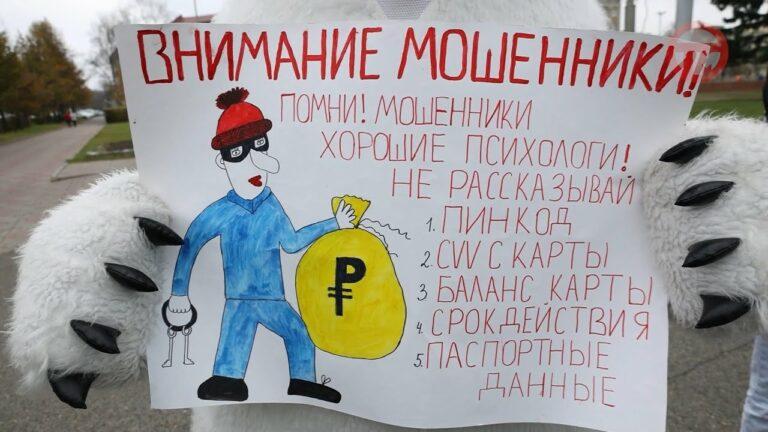 ВНИМАНИЕ МОШЕННИКИ!
ПОМНИ! МОШЕННИКИ
ХОРОШИЕ ПСИХОЛОГИ!
НЕ РАССКАЗЫВАЙ
1. ПИНКОД
2. CVV С КАРТЫ
3 БАЛАНС КАРТЫ
4. СРОК ДЕЙСТВИЯ
5. ПАСПОРТНЫЕ
ДАННЫЕ
₽